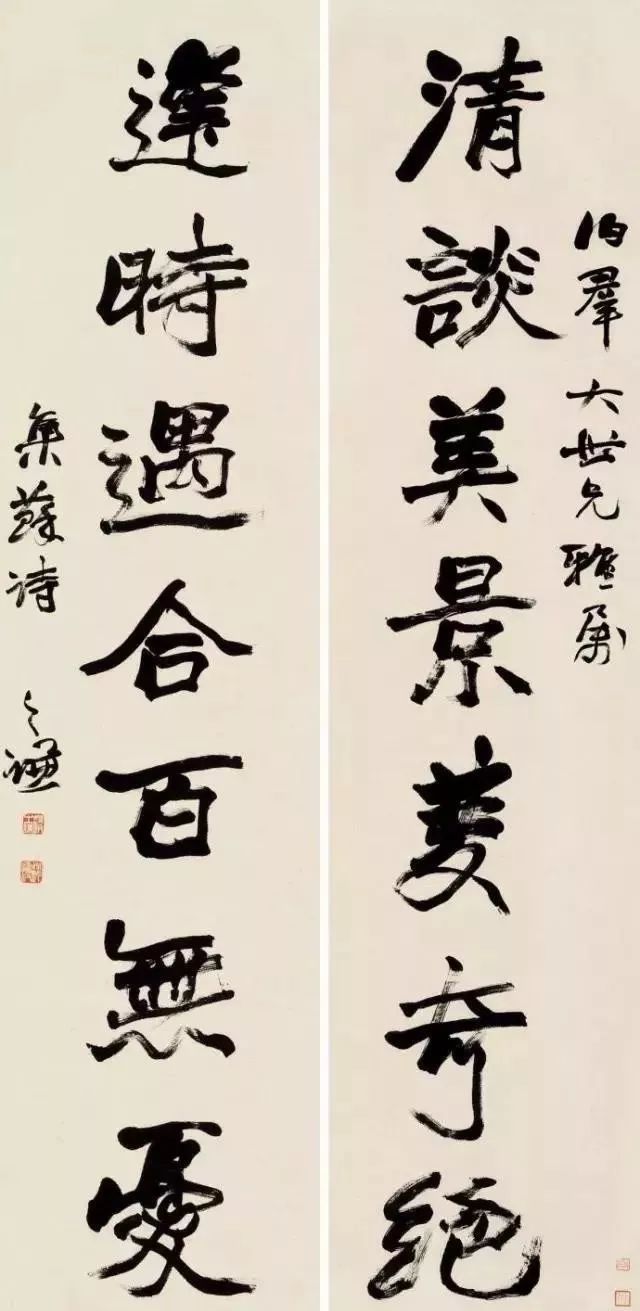 伯羣大世兄雅屬
清談美景雙奇絕
逢時遇合百無憂
集蘇詩
之謙